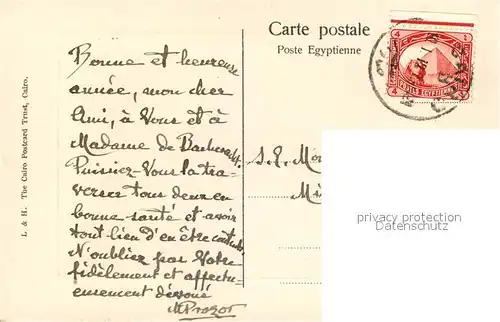 Carte postale
Poste Egyptienne
L & H. The Cairo Postcard Trust, Cairo.
Bonne et heureuse
année, mon cher
Ami, à Vous et à
Madame de
Puissiez-Vous la tra-
verser tous deux en
bonne santé et avoir
tout lieu d'en être
N'oubliez pas Votre
fidèlement et affectu-
eusement dévoué
MProzor
S.E.
4
4
POSTES EGYPTIENNES
CAIRO
privacy protection
Datenschutz